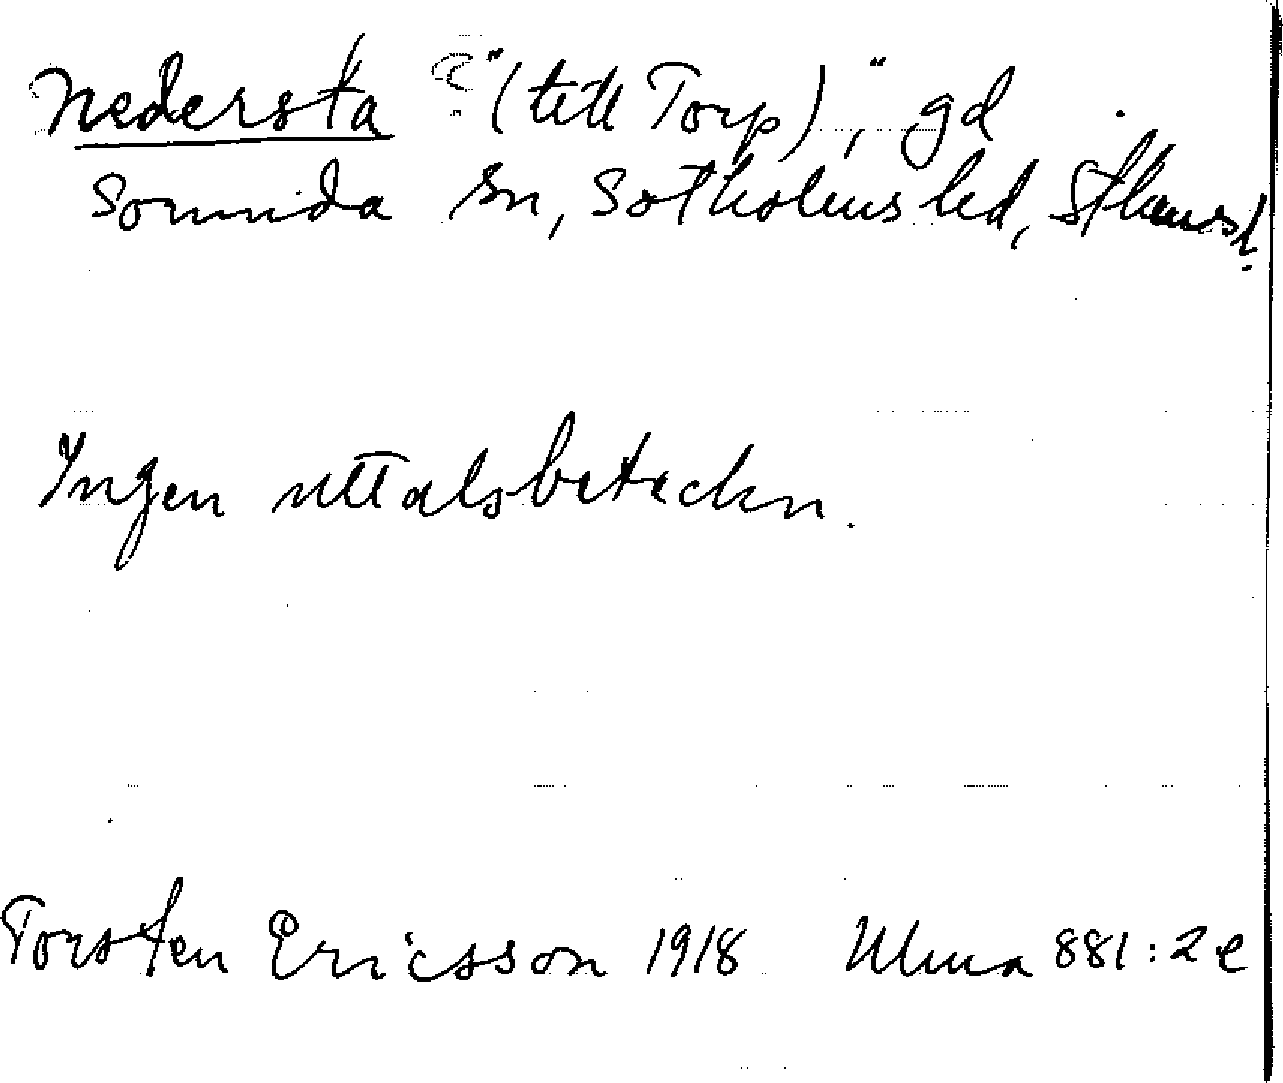 Nedersta ? "(till Torp)", gd
Sorunda sn, Sotholms hd, Sthms l.
Ingen uttalsbeteckn.
Torsten Ericsson 1918 Ulma 881:2e